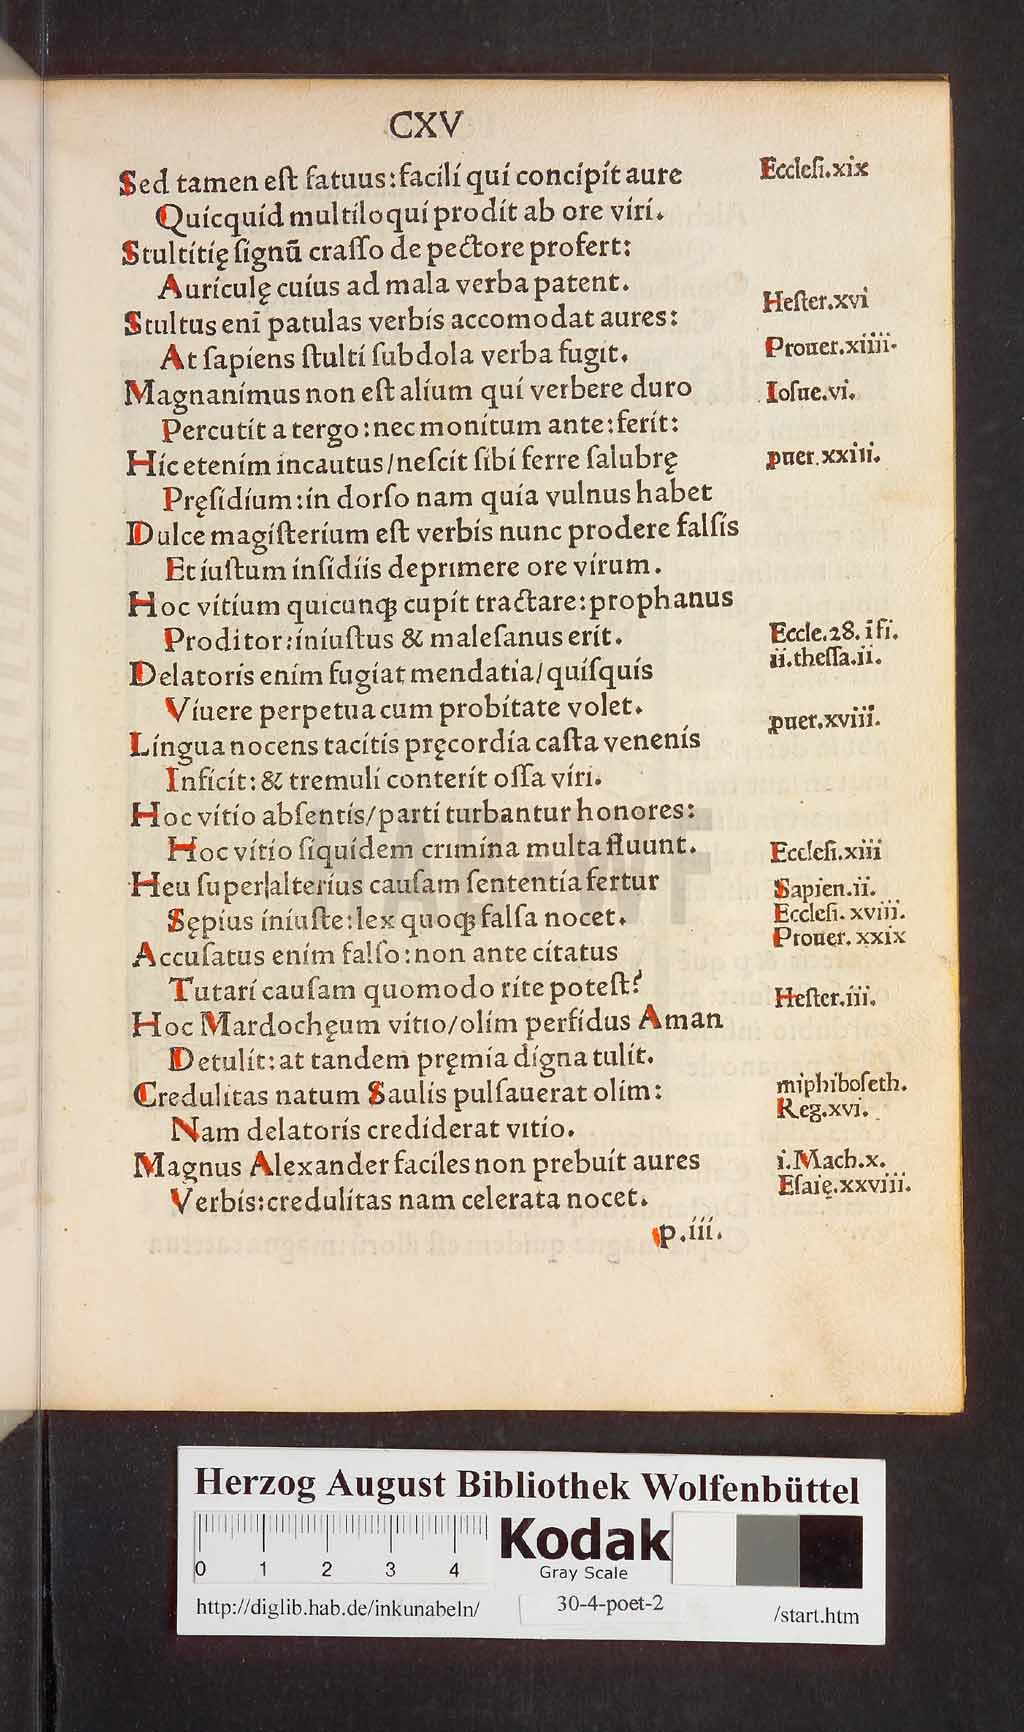 CXV
Sed tamen eſt fatuus: facili qui concipit aure
Quicquid multiloqui prodit ab ore viri.
Stultitię ſignū craſſo de pectore profert:
Auriculę cuius ad mala verba patent.
Stultus enī patulas verbis accomodat aures:
At ſapiens ſtulti ſubdola verba fugit.
Magnanimus non eſt alium qui verbere duro
Percutit a tergo: nec monitum ante: ferit:
Hic etenim incautus/ neſcit ſibi ferre ſalubrę
Pręſidium: in dorſo nam quia vulnus habet
Dulce magiſterium eſt verbis nunc prodere falſis
Et iuſtum inſidiis deprimere ore virum.
Hoc vitium quicunqꝫ cupit tractare: prophanus
Proditor: iniuſtus & maleſanus erit.
Delatoris enim fugiat mendatia/ quiſquis
Viuere perpetua cum probitate volet.
Lingua nocens tacitis pręcordia caſta venenis
Inficit: & tremuli conterit oſſa viri.
Hoc vitio abſentis/ parti turbantur honores:
Hoc vitio ſiquidem crimina multa fluunt.
Heu ſuper|alterius cauſam ſententia fertur
Sępius iniuſte: lex quoqꝫ falſa nocet.
Accuſatus enim falſo: non ante citatus
Tutari cauſam quomodo rite poteſt?
Hoc Mardochęum vitio/ olim perfidus Aman
Detulit: at tandem pręmia digna tulit.
Credulitas natum Saulis pulſauerat olim:
Nam delatoris crediderat vitio.
Magnus Alexander faciles non prebuit aures
Verbis: credulitas nam celerata nocet.
p.iii.
Eccleſi.xix
Heſter.xvi
Prouer.xiiii.
Ioſue.vi.
ꝓuer.xxiii.
Eccle.28. ī fi.
ii.theſſa.ii.
ꝓuer.xviii.
Eccleſi.xiii
Sapien.ii.
Eccleſi. xviii.
Prouer. xxix
Heſter.iii.
miphiboſeth.
Reg.xvi.
i.Mach.x.
Eſaię.xxviii.
HAB WF
Herzog August Bibliothek Wolfenbüttel
0 1 2 3 4
Kodak
Gray Scale
http://diglib.hab.de/inkunabeln/
30-4-poet-2
/start.htm